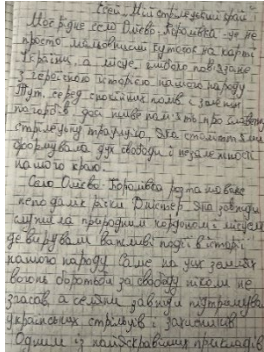 Есей "Мій стрілецький край"
Моє рідне село Олієво-Королівка це не
просто мальовничий куточок на карті
України, а місце, глибоко пов'язане
з героїчною історією нашого народу
Тут, серед спокійних полів і зелених
пагорбів, досі живе пам'ять про славетну
стрілецьку традицію, яка століттями
формувала дух свободи і незалежності
нашого краю.
Село Олієво-Королівка розташоване
неподалік річки Дністер, яка завжди
слугувала природним кордоном і місцем,
де вирували важливі події в історії
нашого народу. Саме на цих землях
вогонь боротьби за свободу ніколи не
згасав, а селяни завжди підтримували
українських стрільців і захисників
Одним із найяскравіших прикладів